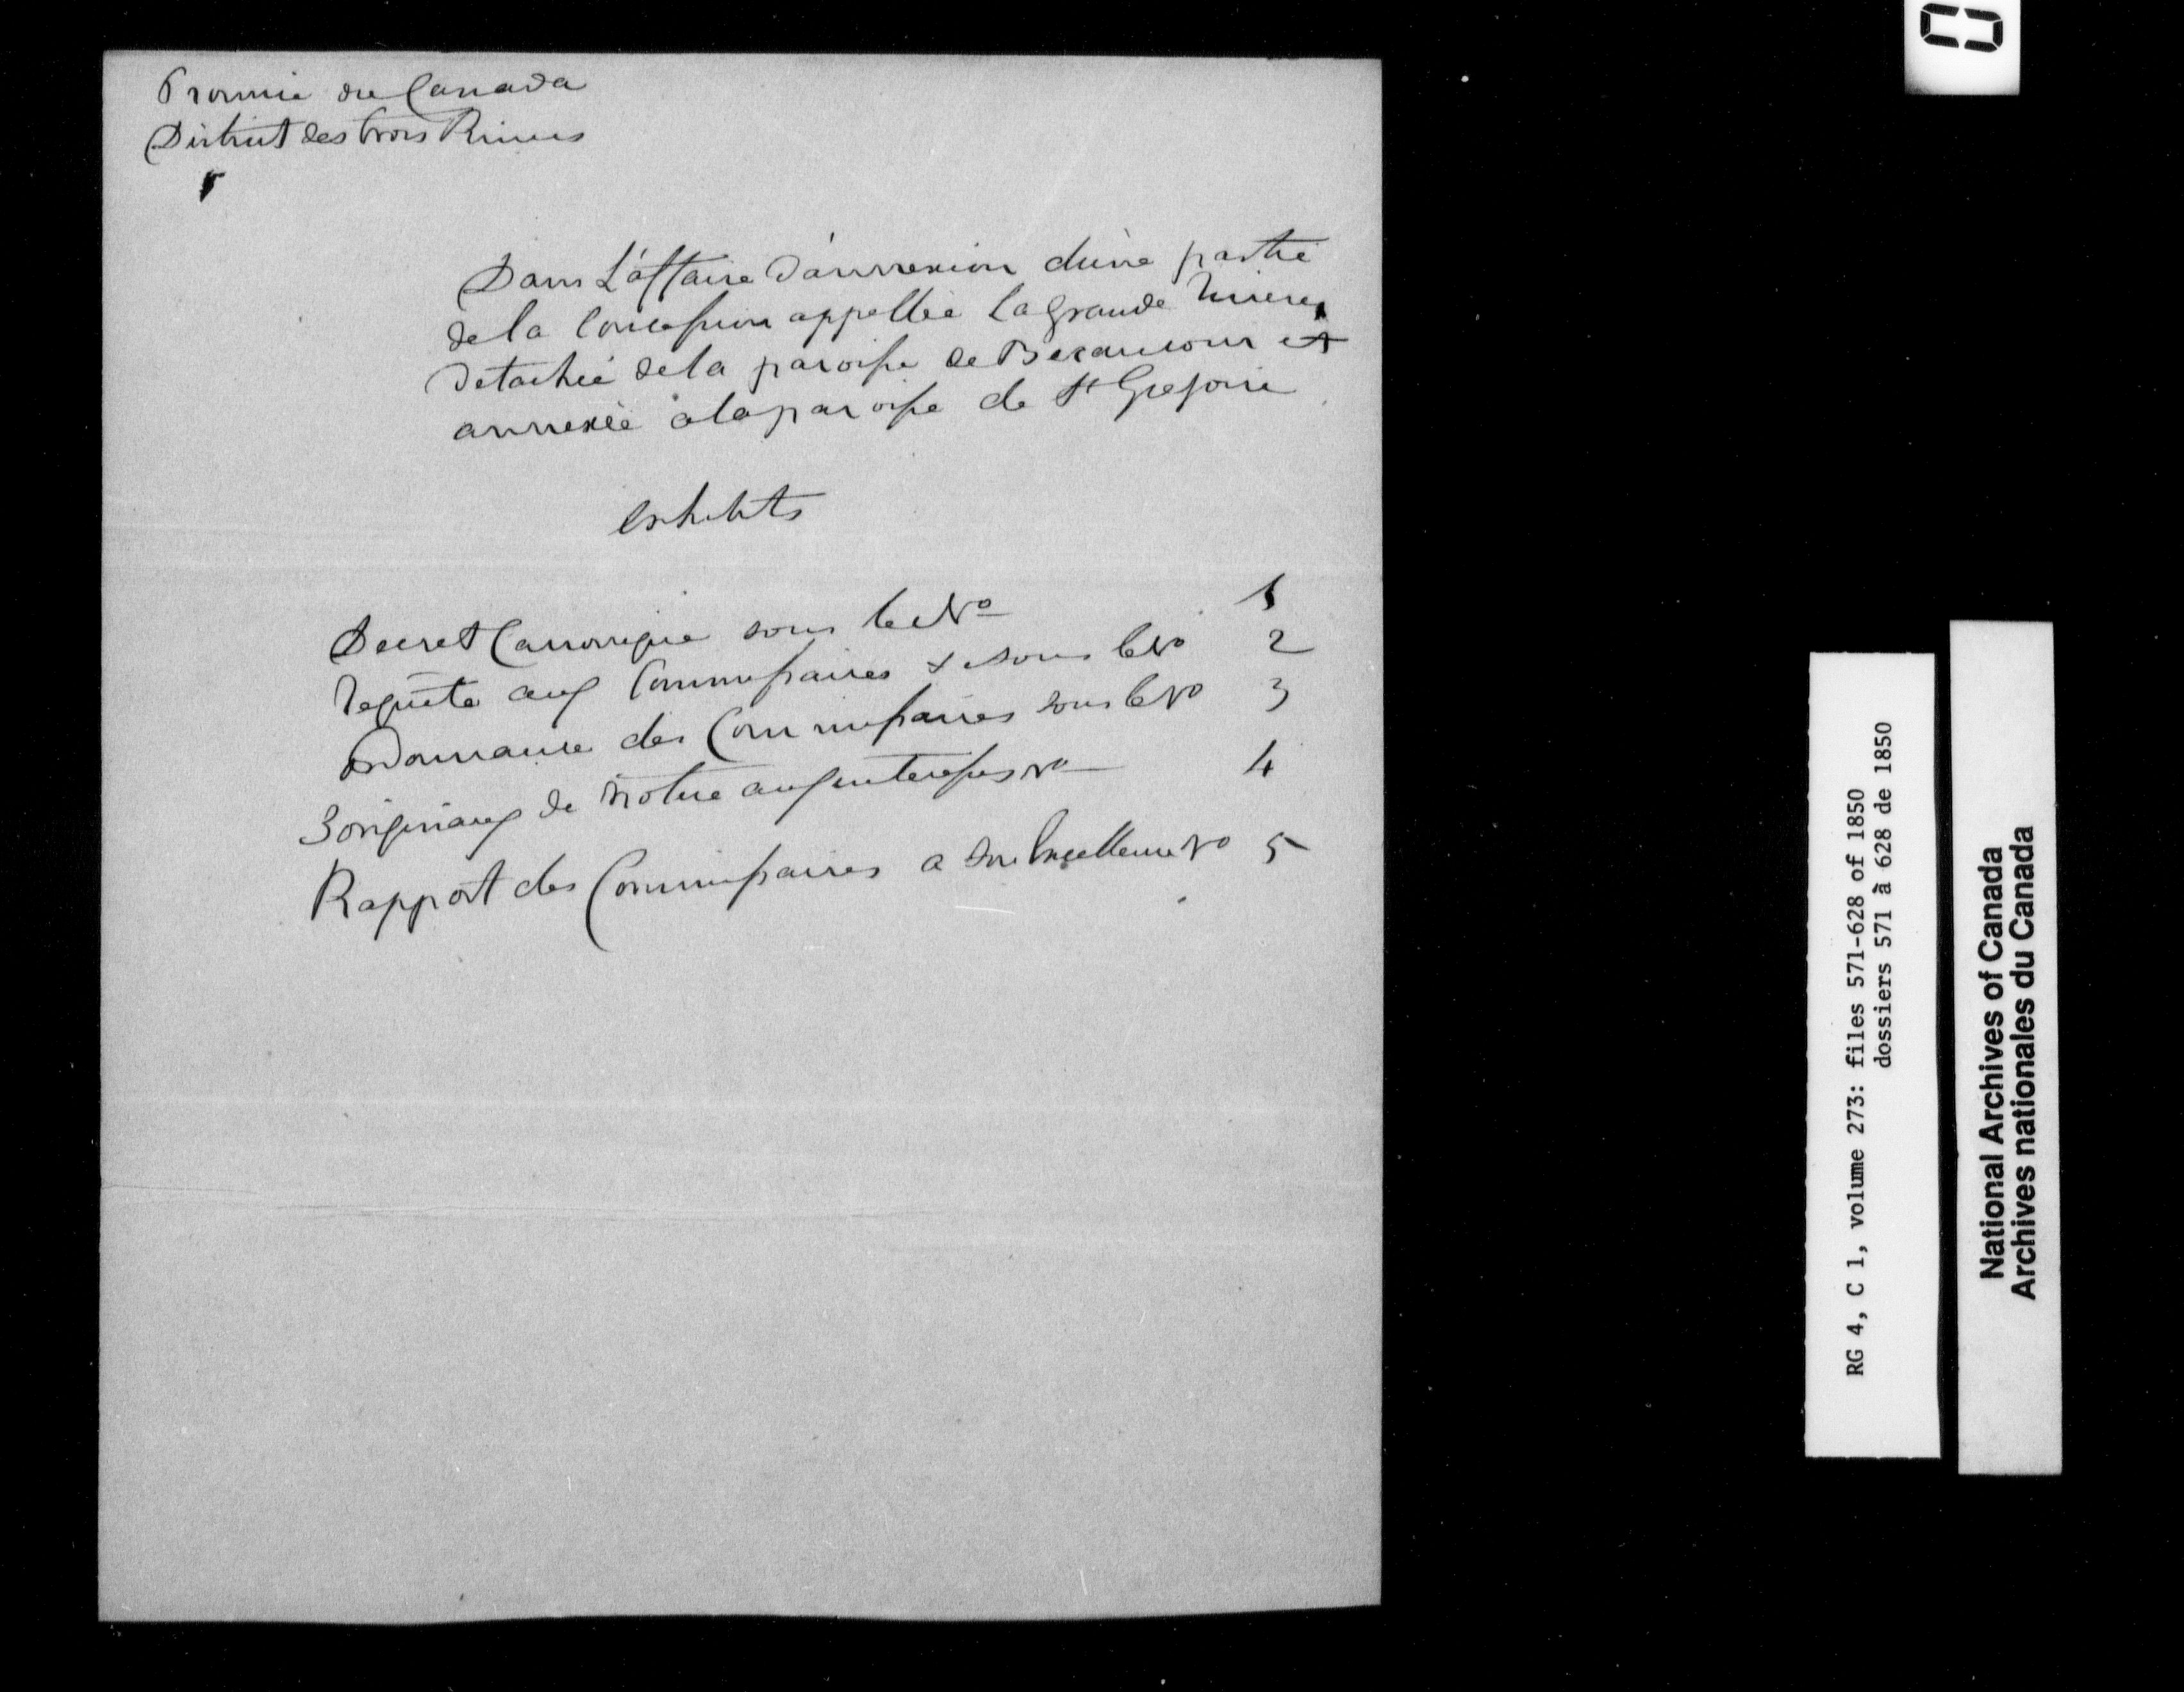 Province du Canada
District des trois Rivieres
Dans L'affaire D'annexion d'une partie
de la Concession appellée la grande Riviere
Detachée de la paroisse de Becancour et
annexée a la paroisse de St Gregoire
Exhibits
Decret Canonique sous le No 1
Requête aux Commissaires & sous le No 2
Ordonnance des Commissaires sous le No 3
3 originaux de Notice aux interessés No 4
Rapport des Commissaires a Son Excellence No 5
RG 4, C 1, volume 273: files 571-628 of 1850
dossiers 571 à 628 de 1850
National Archives of Canada
Archives nationales du Canada